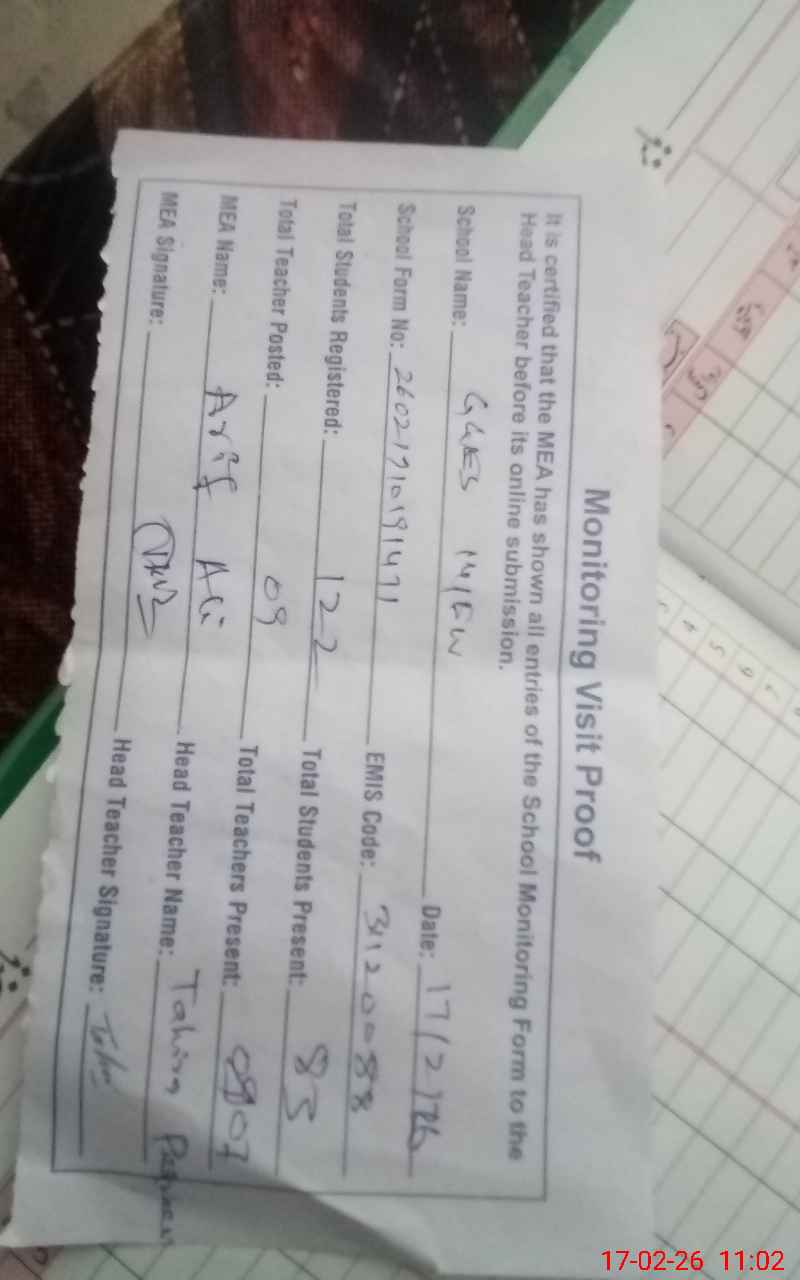 Monitoring Visit Proof
It is certified that the MEA has shown all entries of the School Monitoring Form to the
Head Teacher before its online submission.
School Name: GGES 14/FW Date: 17/2/26
School Form No: 26021710191471 EMIS Code: 31120088
Total Students Registered: 122 Total Students Present: 83
Total Teacher Posted: 09 Total Teachers Present: 07
MEA Name: Arif Ali Head Teacher Name: Tahira Parveen
MEA Signature: Head Teacher Signature:
17-02-26 11:02